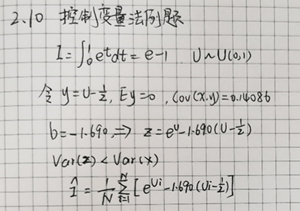 2.10 控制变量法例题
I=∫₀¹eᵗdt=e-1 U~U(0,1)
令 y=U-1/2, Ey=0, Cov(x,y)=0.14086
b=-1.690, ⇒ z=eᵁ-1.690(U-1/2)
Var(z)<Var(x)
Î=1/N ∑ᵢ₌₁ᴺ [e^Ui-1.690(Ui-1/2)]